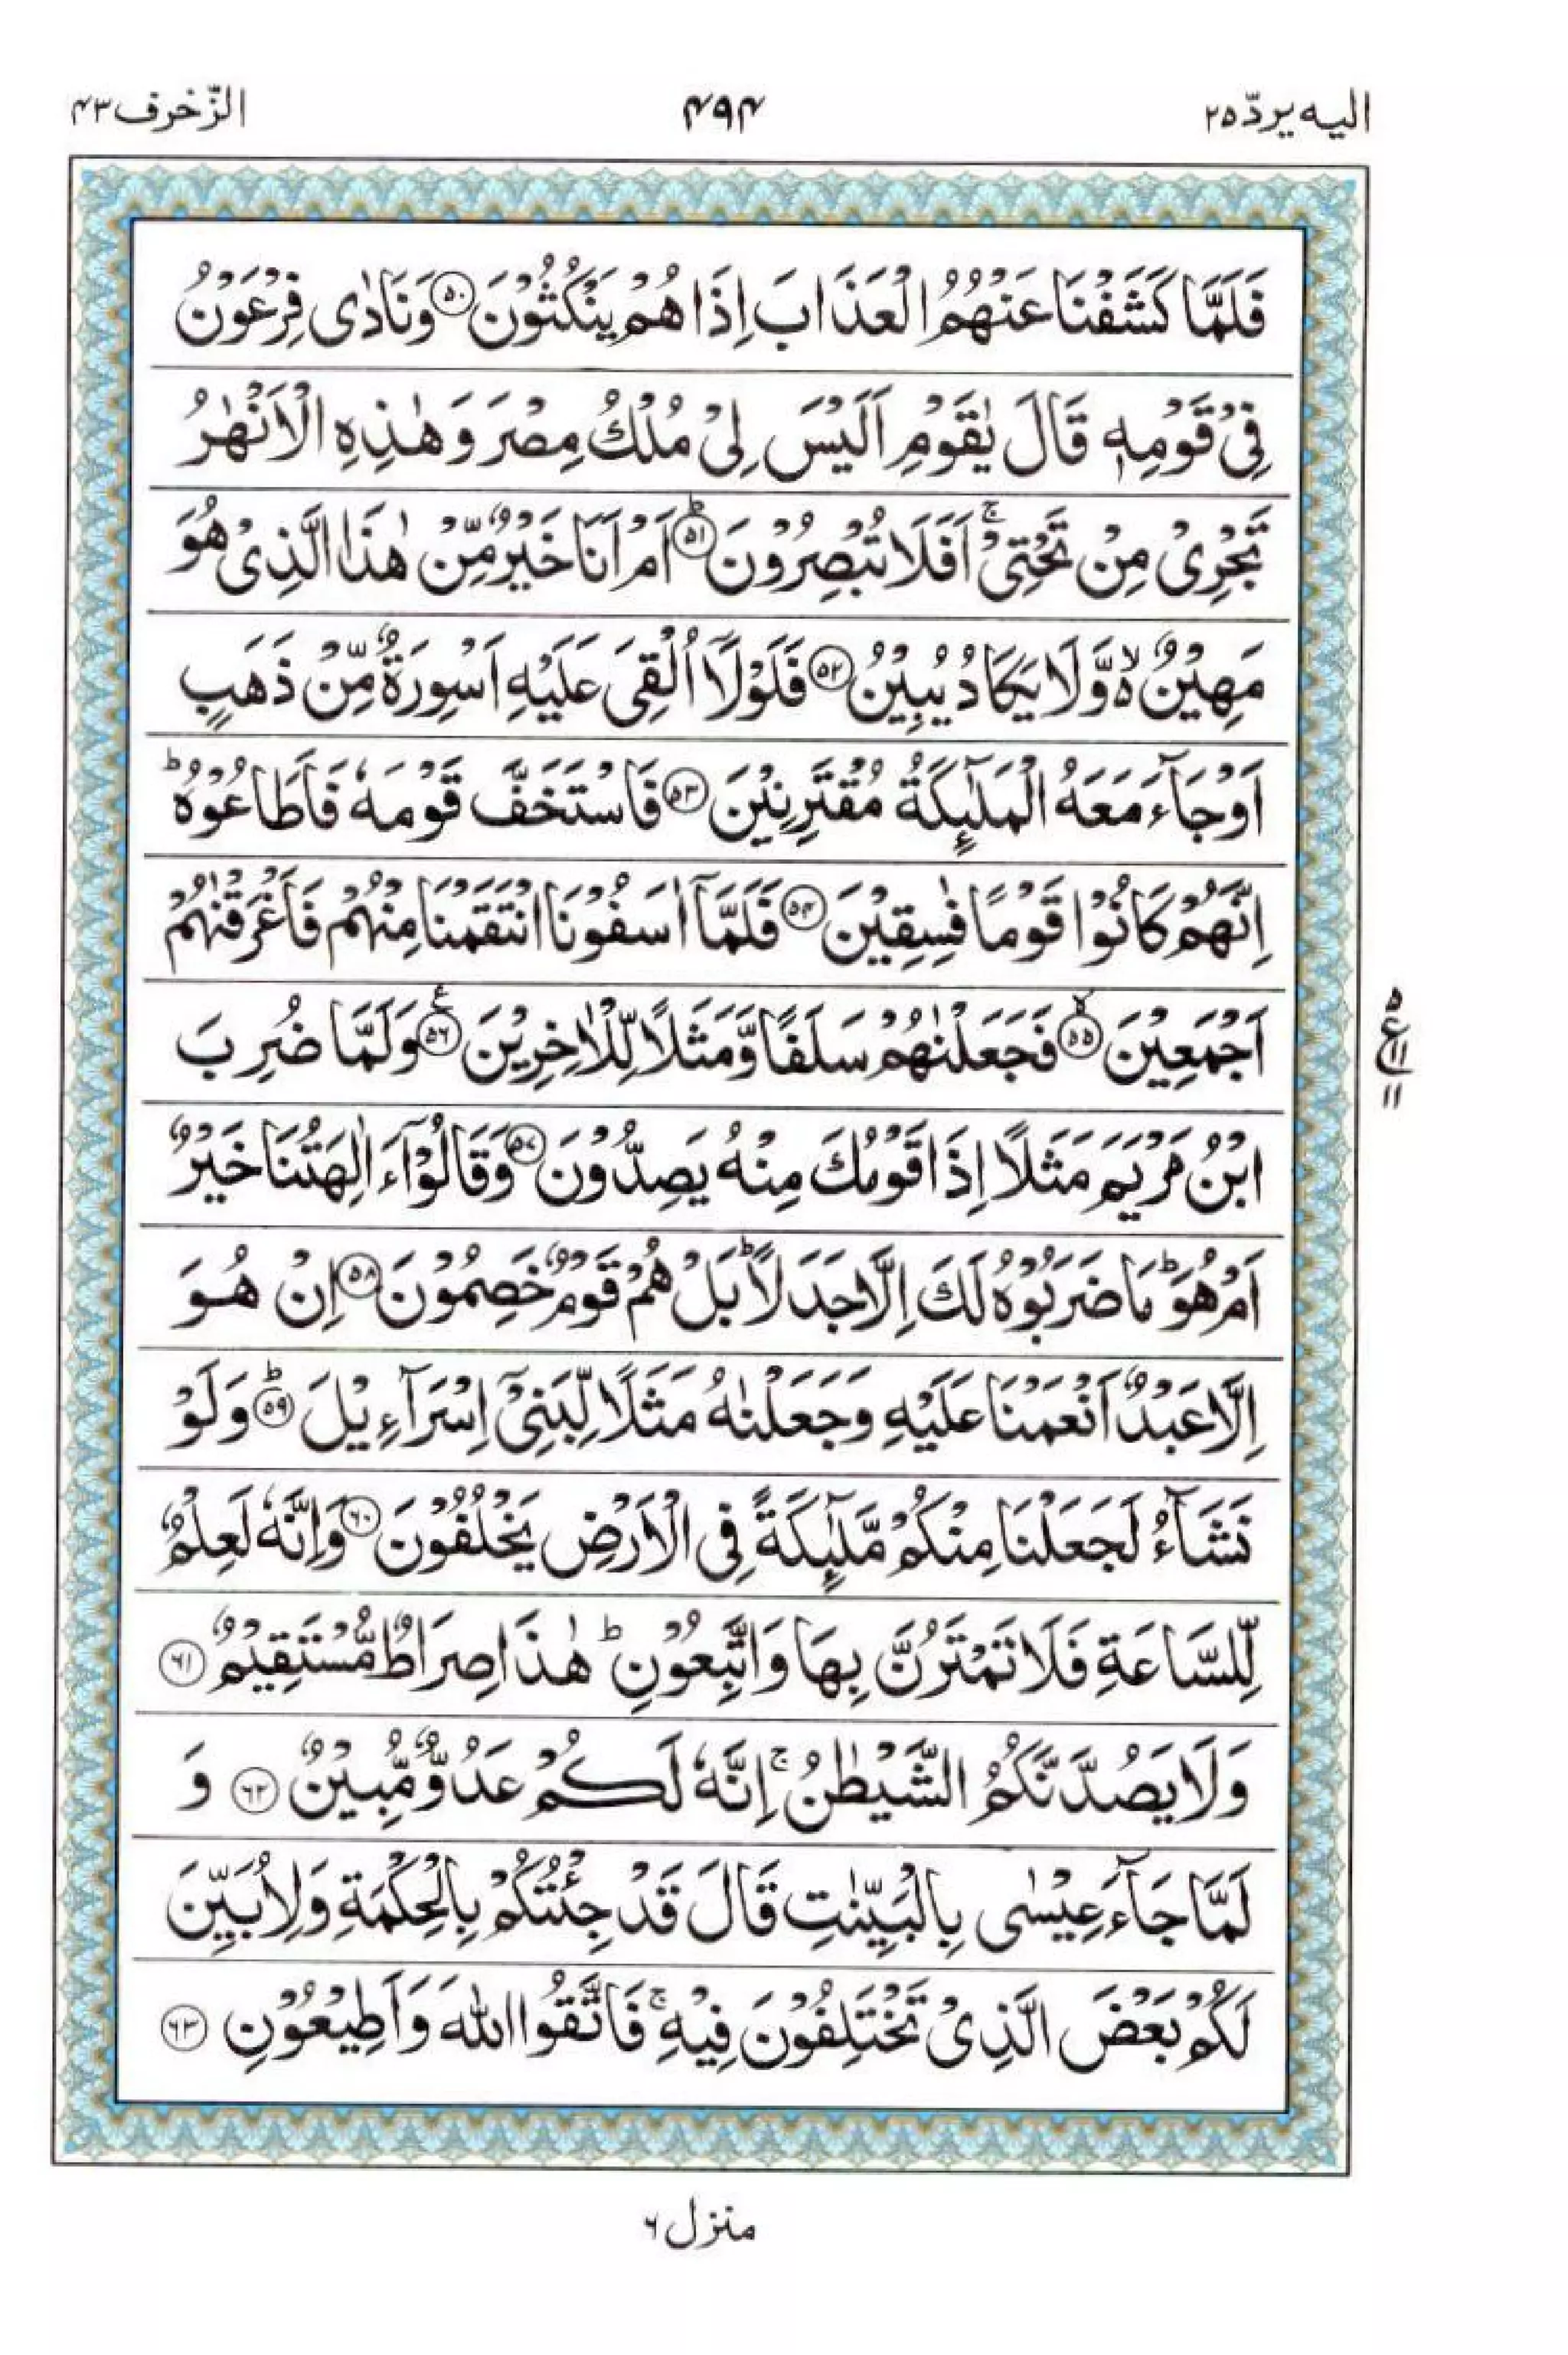 اليه يردّ ۲۵
۴۹۴
الزّخرف ۴۳
فَلَمَّا كَشَفْنَا عَنْهُمُ الْعَذَابَ اِذَا هُمْ يَنْكُثُوْنَ ۵۰ وَنَادٰى فِرْعَوْنُ
فِيْ قَوْمِهٖ قَالَ يٰقَوْمِ اَلَيْسَ لِيْ مُلْكُ مِصْرَ وَهٰذِهِ الْاَنْهٰرُ
تَجْرِيْ مِنْ تَحْتِيْ ۚ اَفَلَا تُبْصِرُوْنَ ۵۱ ؕ اَمْ اَنَا خَيْرٌ مِّنْ هٰذَا الَّذِيْ هُوَ
مَهِيْنٌ ۙ۬ وَّلَا يَكَادُ يُبِيْنُ ۵۲ فَلَوْلَاۤ اُلْقِيَ عَلَيْهِ اَسْوِرَةٌ مِّنْ ذَهَبٍ
اَوْ جَآءَ مَعَهُ الْمَلٰٓئِكَةُ مُقْتَرِنِيْنَ ۵۳ فَاسْتَخَفَّ قَوْمَهٗ فَاَطَاعُوْهُ ؕ
اِنَّهُمْ كَانُوْا قَوْمًا فٰسِقِيْنَ ۵۴ فَلَمَّاۤ اٰسَفُوْنَا انْتَقَمْنَا مِنْهُمْ فَاَغْرَقْنٰهُمْ
اَجْمَعِيْنَ ۵۵ ۙ فَجَعَلْنٰهُمْ سَلَفًا وَّمَثَلًا لِّلْاٰخِرِيْنَ ۵۶ ع وَلَمَّا ضُرِبَ
۵
ع ۱۱
۱۱
ابْنُ مَرْيَمَ مَثَلًا اِذَا قَوْمُكَ مِنْهُ يَصِدُّوْنَ ۵۷ وَقَالُوْٓا ءَاٰلِهَتُنَا خَيْرٌ
اَمْ هُوَ ؕ مَا ضَرَبُوْهُ لَكَ اِلَّا جَدَلًا ؕ بَلْ هُمْ قَوْمٌ خَصِمُوْنَ ۵۸ اِنْ هُوَ
اِلَّا عَبْدٌ اَنْعَمْنَا عَلَيْهِ وَجَعَلْنٰهُ مَثَلًا لِّبَنِيْٓ اِسْرَآءِيْلَ ۵۹ ؕ وَلَوْ
نَشَآءُ لَجَعَلْنَا مِنْكُمْ مَّلٰٓئِكَةً فِي الْاَرْضِ يَخْلُفُوْنَ ۶۰ وَاِنَّهٗ لَعِلْمٌ
لِّلسَّاعَةِ فَلَا تَمْتَرُنَّ بِهَا وَاتَّبِعُوْنِ ؕ هٰذَا صِرَاطٌ مُّسْتَقِيْمٌ ۶۱
وَلَا يَصُدَّنَّكُمُ الشَّيْطٰنُ ۚ اِنَّهٗ لَكُمْ عَدُوٌّ مُّبِيْنٌ ۶۲ وَ
لَمَّا جَآءَ عِيْسٰى بِالْبَيِّنٰتِ قَالَ قَدْ جِئْتُكُمْ بِالْحِكْمَةِ وَلِاُبَيِّنَ
لَكُمْ بَعْضَ الَّذِيْ تَخْتَلِفُوْنَ فِيْهِ ۚ فَاتَّقُوا اللهَ وَاَطِيْعُوْنِ ۶۳
منزل ۶